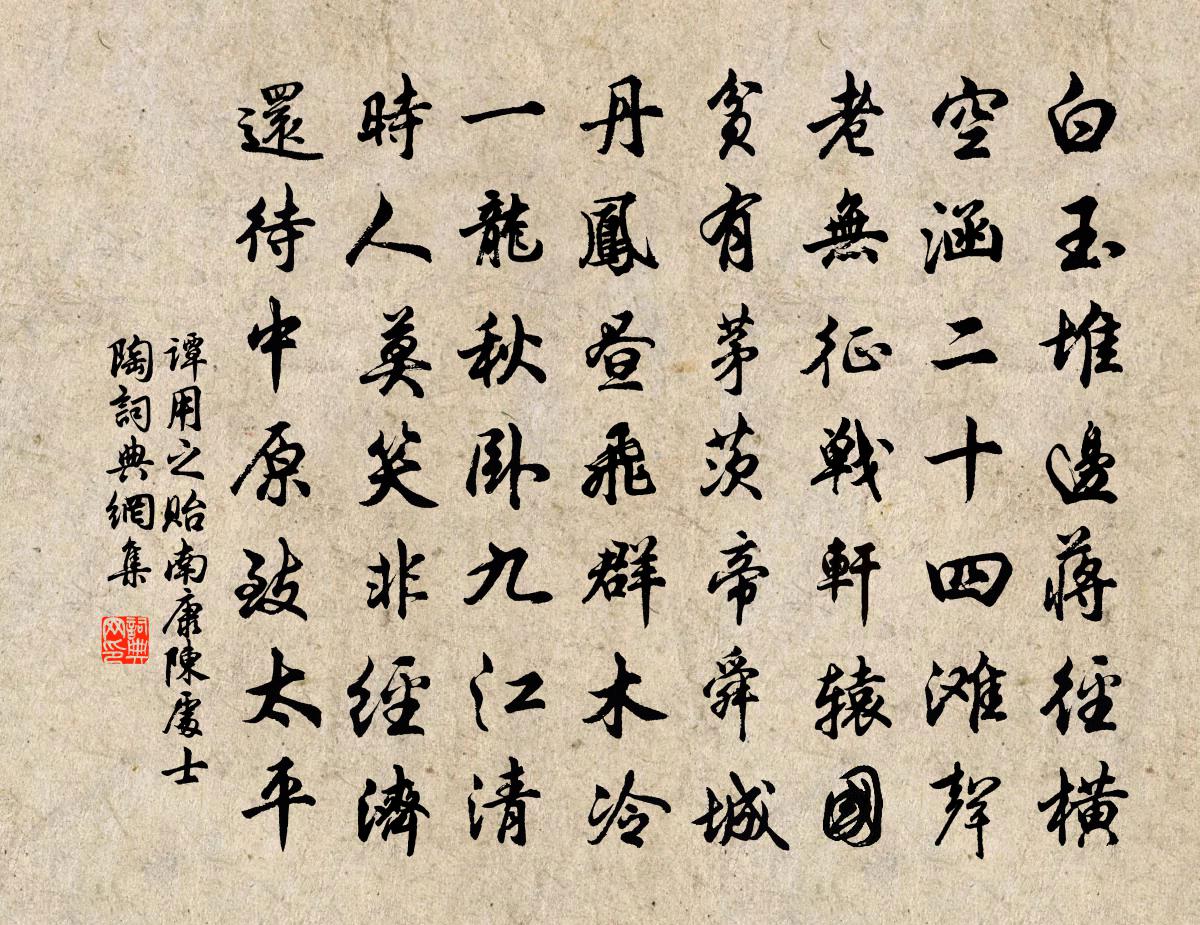 白玉堆邊蔣徑橫
空涵二十四滩聲
老無征戰軒辕國
貧有茅茨帝舜城
丹鳳昼飛群木冷
一龍秋卧九江清
時人莫笑非經濟
還待中原致太平
谭用之貽南康陳處士
陶詞典網集
詞典网印